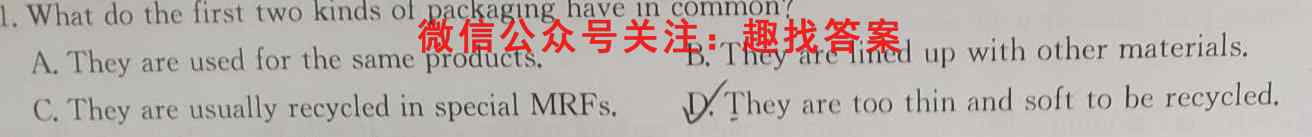 1. What do the first two kinds of packaging have in common?
微信公众号关注：趣找答案
A. They are used for the same products. B. They are lined up with other materials.
C. They are usually recycled in special MRFs. D. They are too thin and soft to be recycled.